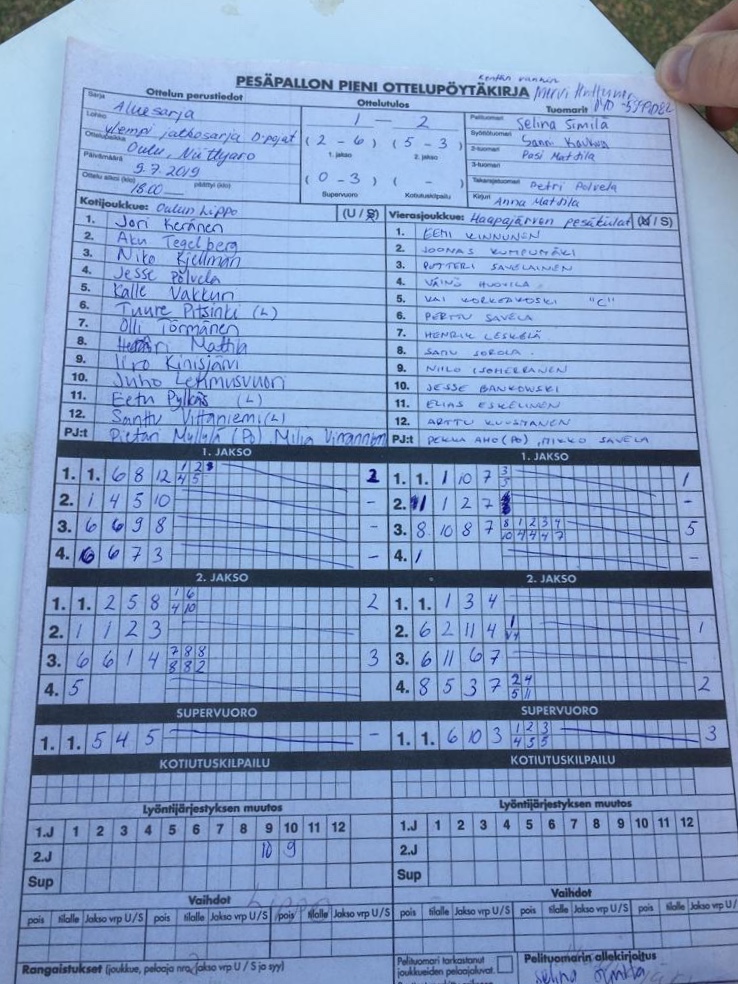 PESÄPALLON PIENI OTTELUPÖYTÄKIRJA
Ottelun perustiedot
Sarja Aluesarja
Lohko ylempi jatkosarja D-pojat
Ottelupaikka Oulu, Niittyaro
Päivämäärä 9.7.2019
Ottelu alkoi (klo) 18.00 päättyi (klo)
Ottelutulos
1 — 2
( 2 - 6 ) ( 5 - 3 )
1. jakso 2. jakso
( 0 - 3 ) ( - )
Supervuoro Kotiutuskilpailu
Tuomarit
Pelituomari Selina Similä
Syöttötuomari
2-tuomari Pasi Mattila
3-tuomari
Takarajatuomari Petri Polvela
Kirjuri Anna Mattila
Kotijoukkue: Oulun Lippo (U / S)
1. Jori Keränen
2. Aku Tegelberg
3. Niko Kjellman
4. Jesse Polvela
5. Kalle Vakkuri
6. Tuure Pitsinki (L)
7. Olli Törmänen
8. Mattila
9. Iiro Kinisjärvi
10. Juho Lehmusvuori
11. Eetu Pylkäs (L)
12. Santtu Viitaniemi (L)
PJ:t Pietari Myllylä (PJ), Milja
Vierasjoukkue: Haapajärven pesäkiilat (U / S)
1. EEMI KINNUNEN
2. JOONAS KUMPUMÄKI
3. PETTERI SAVELAINEN
4. VÄINÖ HUOVILA
5. KAI KORKEAKOSKI "C"
6. PERTTU SAVELA
7. HENRIK LESKELÄ
8. SAMU SOROLA
9. NIILO ISOHERRANEN
10. JESSE BANKOWSKI
11. ELIAS ESKELINEN
12. ARTTU KUUSTANEN
PJ:t PEKKA AHO (PJ), MIKKO SAVELA
1. JAKSO
1. 1. 6 8 12 1 2 4 5 2
2. 1 4 5 10 -
3. 6 6 9 8 -
4. 6 6 7 3 -
1. JAKSO
1. 1. 1 10 7 3 5 1
2. 11 1 2 7 -
3. 8 10 8 7 8 1 2 3 4 10 4 4 4 7 5
4. 1 -
2. JAKSO
1. 1. 2 5 8 1 6 4 10 2
2. 1 1 2 3
3. 6 6 1 4 7 8 8 8 8 2 3
4. 5
2. JAKSO
1. 1. 1 3 4
2. 6 2 11 4 1
3. 6 11 6 7
4. 8 5 3 7 2 4 5 11 2
SUPERVUORO
1. 1. 5 4 5 -
SUPERVUORO
1. 1. 6 10 3 1 2 3 4 5 5 3
KOTIUTUSKILPAILU
KOTIUTUSKILPAILU
Lyöntijärjestyksen muutos
1.J 1 2 3 4 5 6 7 8 9 10 11 12
2.J 10 9
Sup
Lyöntijärjestyksen muutos
1.J 1 2 3 4 5 6 7 8 9 10 11 12
2.J
Sup
Vaihdot
pois tilalle Jakso vrp U/S pois tilalle Jakso vrp U/S pois tilalle Jakso vrp U/S
Vaihdot
pois tilalle Jakso vrp U/S pois tilalle Jakso vrp U/S pois tilalle Jakso vrp U/S
Rangaistukset (joukkue, pelaaja nro, jakso vrp U / S ja syy)
Pelituomari tarkastanut
joukkueiden pelaajaluvat.
Pelituomarin allekirjoitus
Selina Similä